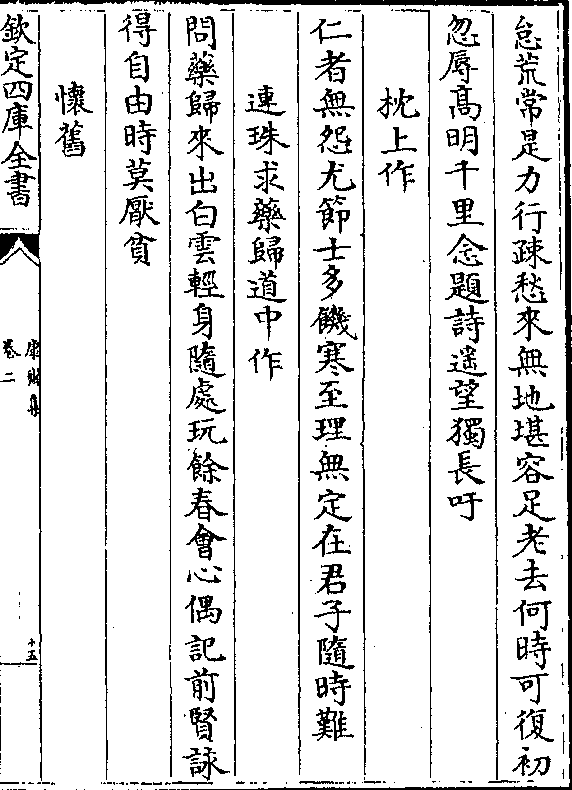 怠荒常是力行疎愁來無地堪容足老去何時可復初
忽辱髙明千里念題詩遥望獨長吁
枕上作
仁者無怨尤節士多饑寒至理無定在君子隨時難
連珠求藥歸道中作
問藥歸來出白雲輕身隨處玩餘春㑹心偶記前賢詠
得自由時莫厭貧
懷舊
欽定四庫全書
康齋集
卷二
十五